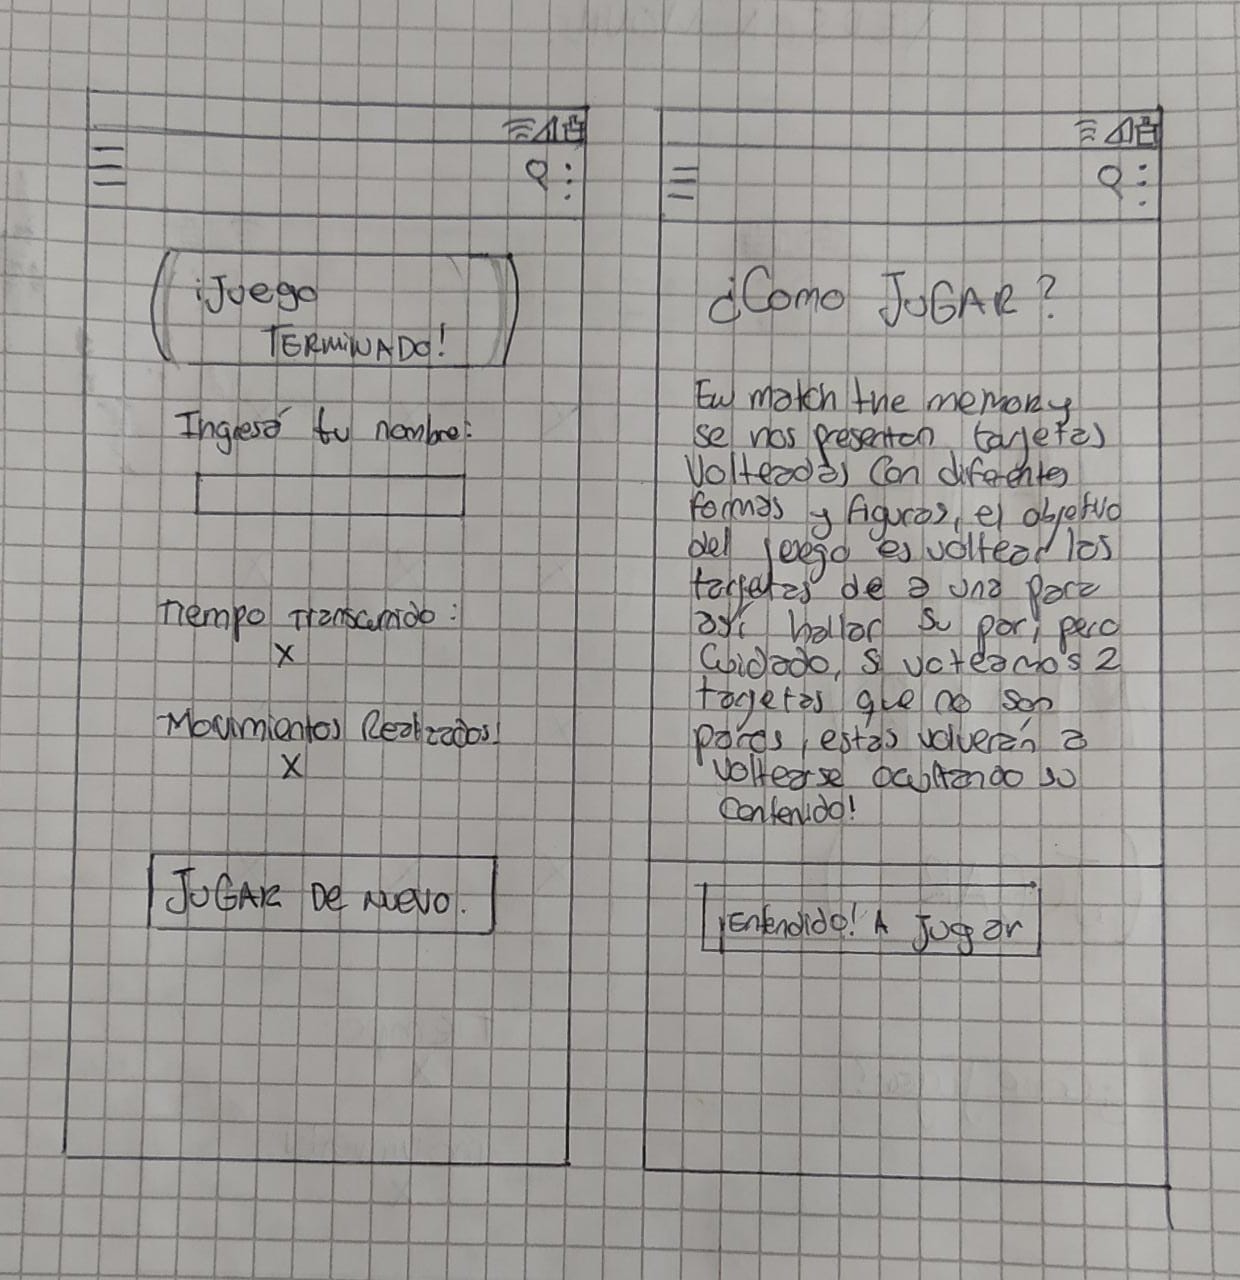 ¡Juego
TERMINADO!
Ingresá tu nombre:
Tiempo Transcurrido:
X
Movimientos Realizados:
X
JUGAR DE NUEVO.
¿Como JUGAR?
En match the memory
se nos presentan tarjetas
Volteadas Con diferentes
formas y figuras, el objetivo
del juego es voltear las
tarjetas de a una para
así hallar su par, pero
Cuidado, si volteamos 2
tarjetas que no son
pares, estas volverán a
voltearse ocultando su
Contenido!
¡Entendido! A Jugar